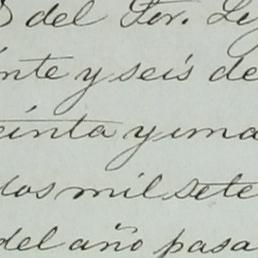 del Sor. Le
inte y seis de
einta y una
dos mil sete
del año pasa